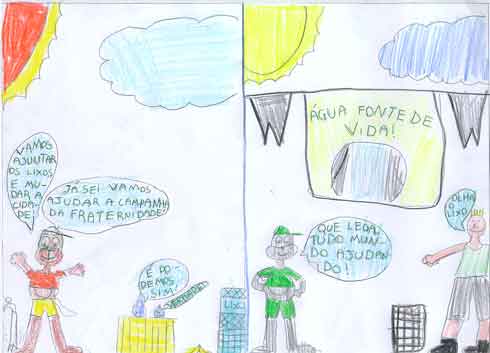 VAMOS
AJUNTAR
OS LIXOS
E MU-
DAR A
CIDA-
DE!
JÁ SEI VAMOS
AJUDAR A CAMPANHA
DA FRATERNIDADE!
E PO
DEMOS
SIM
ÁGUA FONTE DE
VIDA!
QUE LEGAL
TUDO MUN-
DO AJUDAN-
DO!
OLHA
O
LIXO